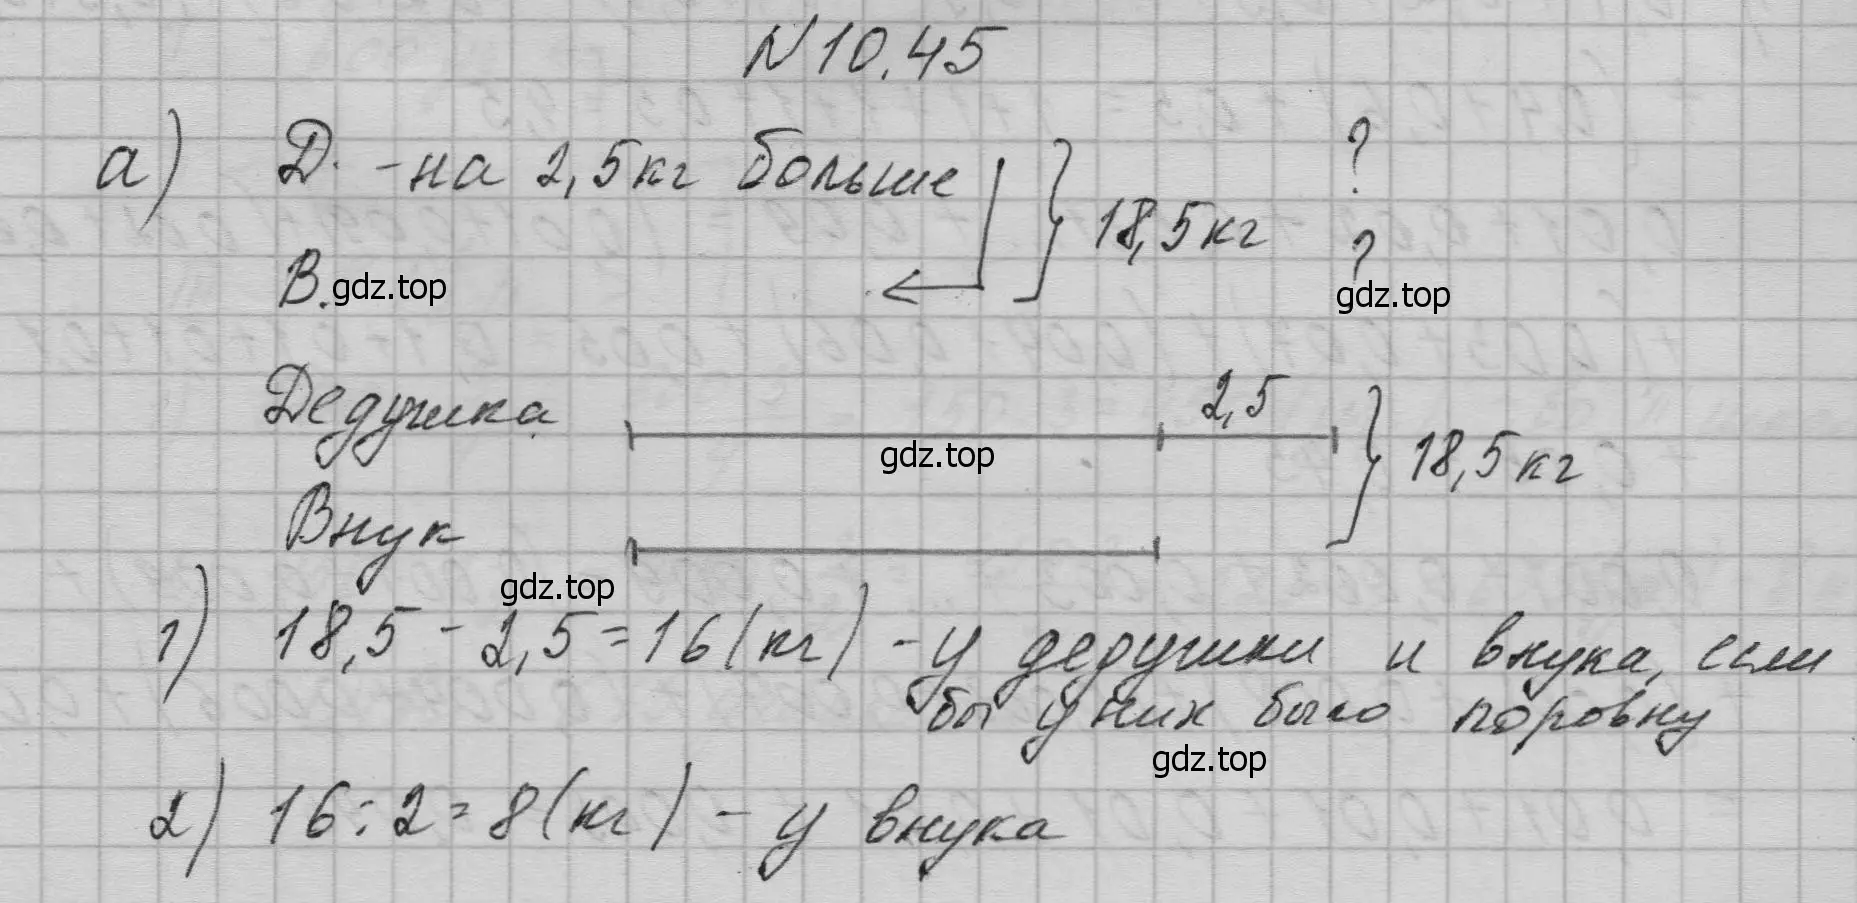 N10.45
а) Д. - на 2,5кг больше } 18,5кг ?
В. ?
gdz.top gdz.top
Дедушка 2,5 } 18,5кг
gdz.top
Внук
gdz.top
1) 18,5 - 2,5 = 16 (кг) - у дедушки и внука, если
бы у них было поровну
gdz.top
2) 16 : 2 = 8 (кг) - у внука